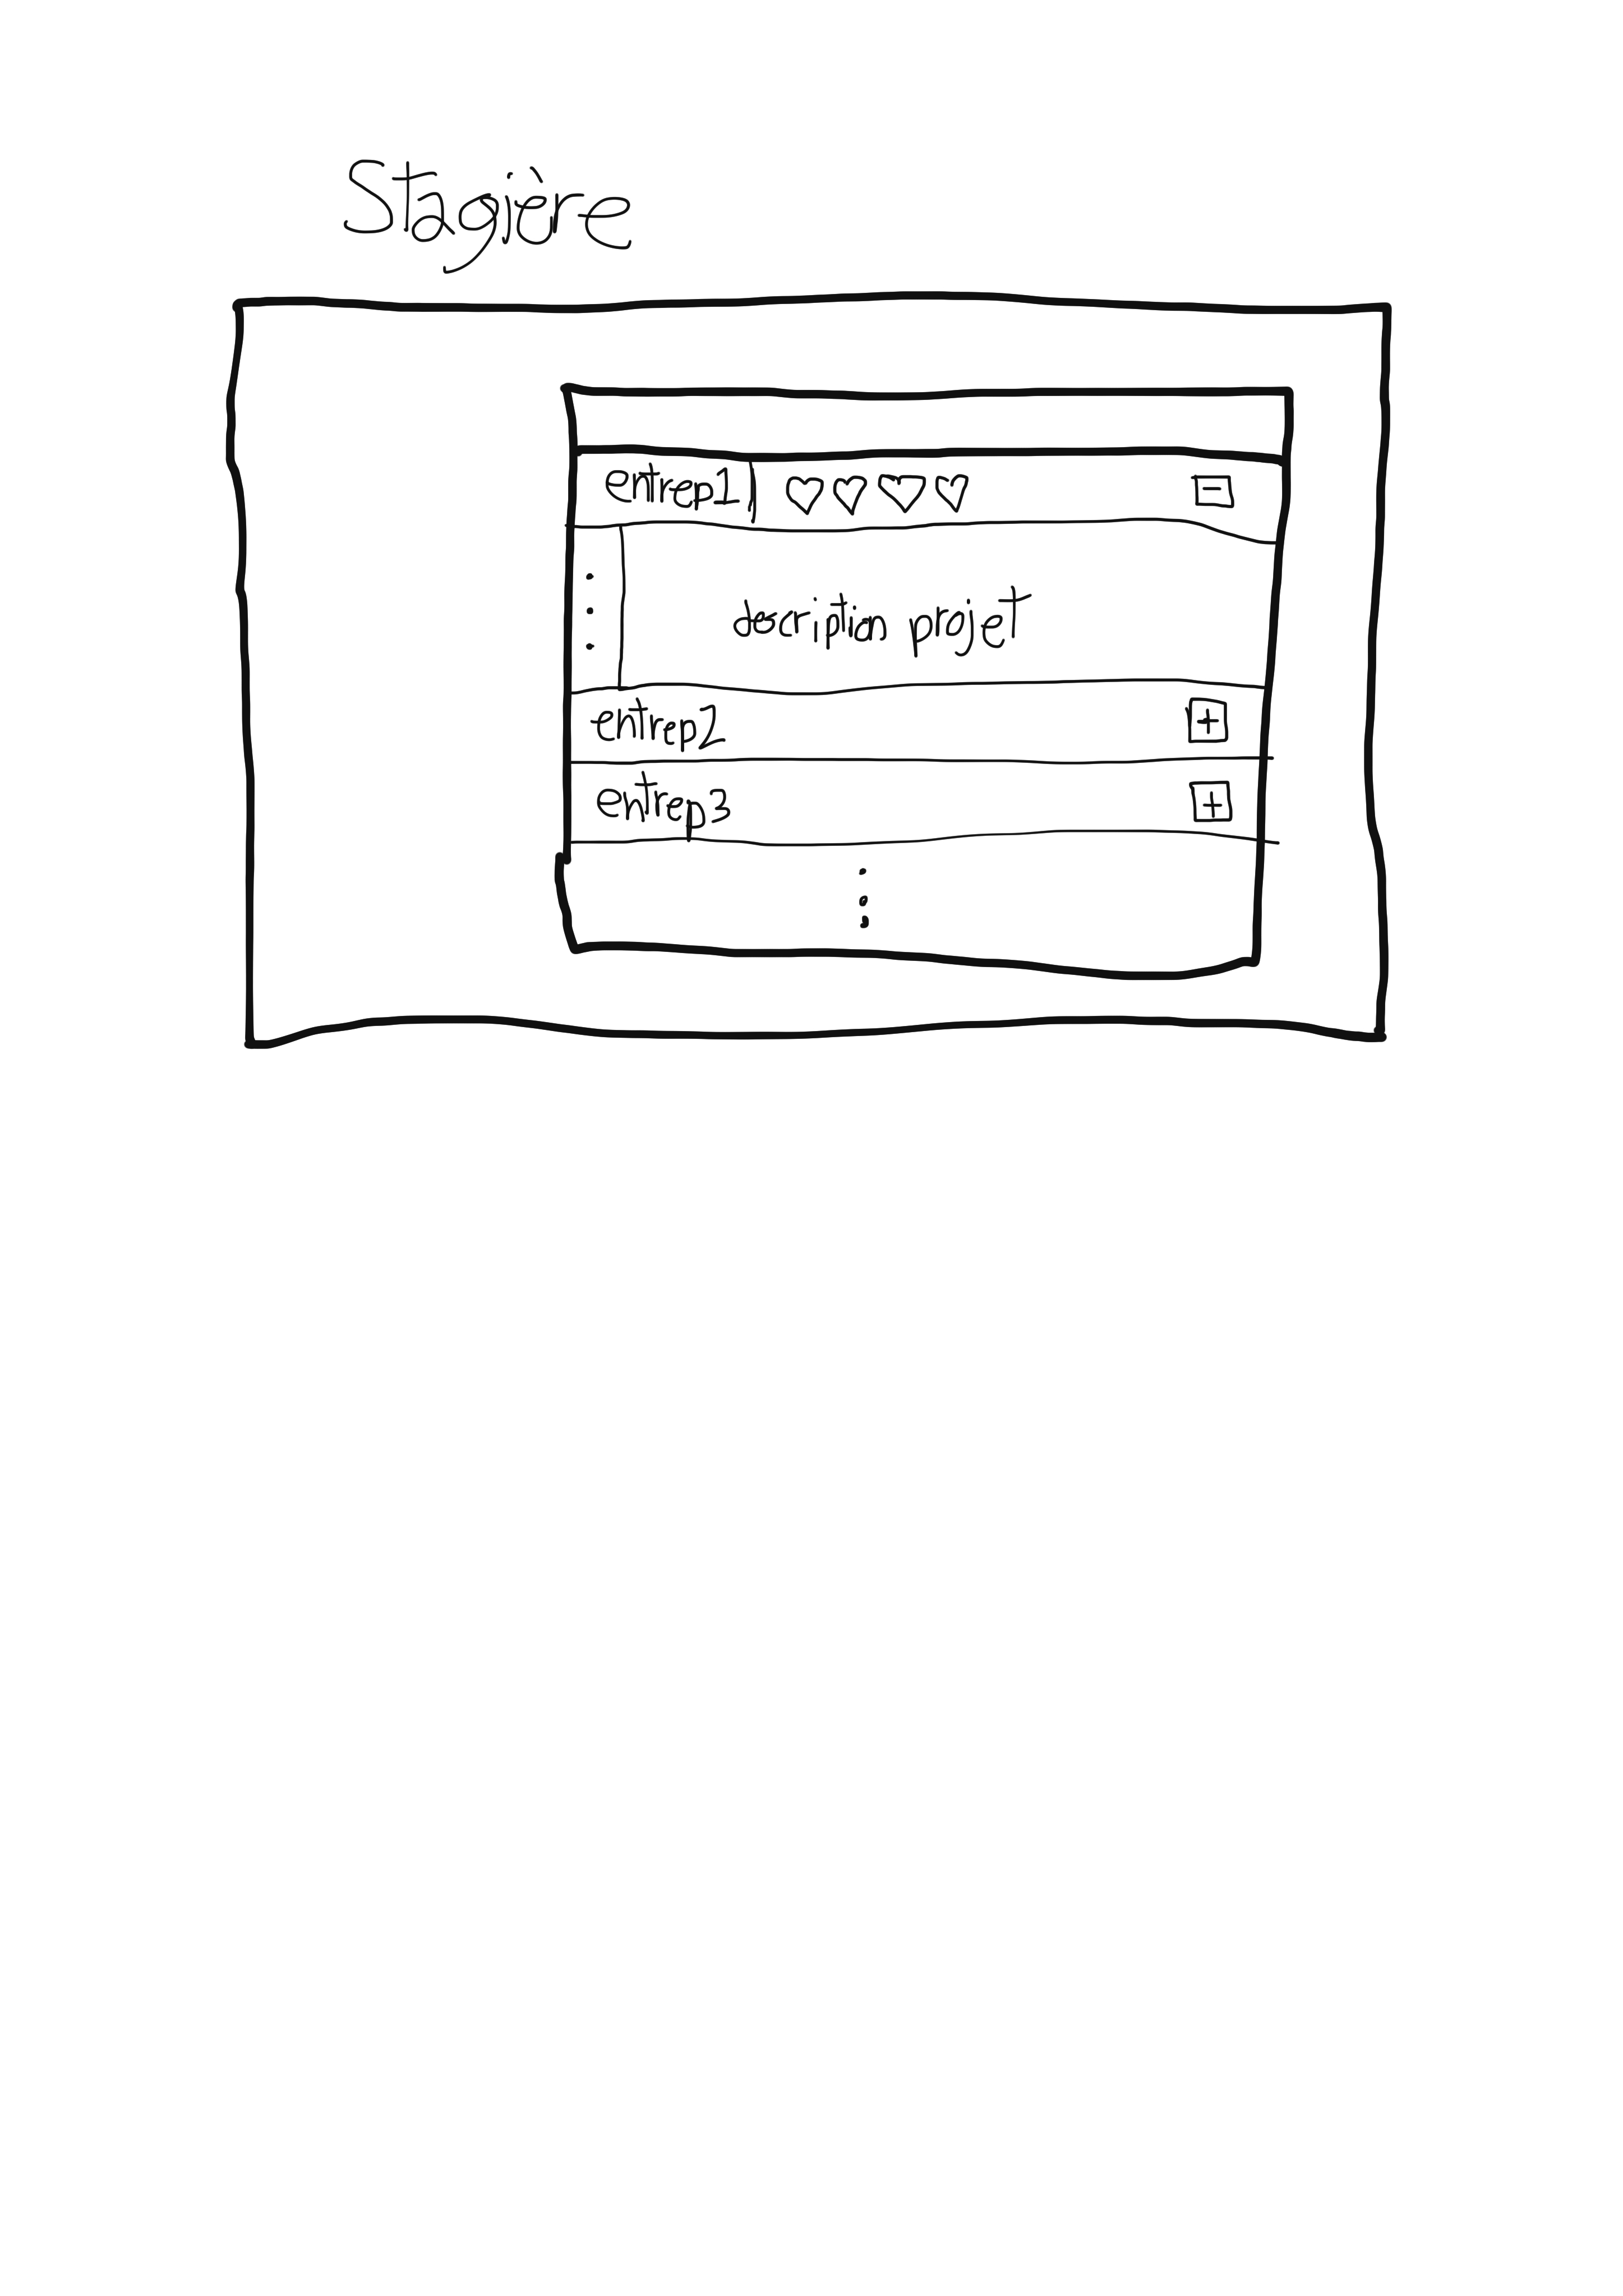 Stagière
entrep1
description projet
entrep2
entrep3